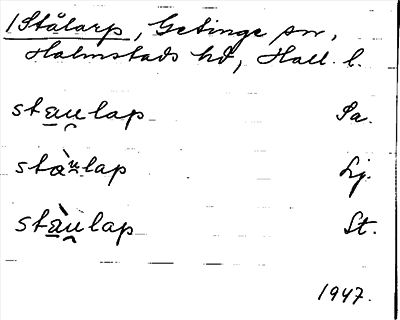 /Stålarp, Getinge sn,
Halmstads hd, Hall. l.
sta̲u̯lap Sa.
stà̲u̯lap Lj.
stà̲u̯lap St.
1947.